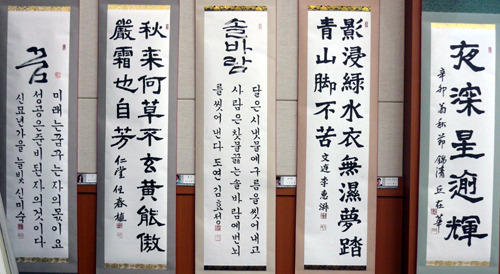 꿈
미래는꿈꾸는자의몫이요
성공은준비된자의것이다
신묘년가을 늘빛 신미숙
秋来何草不玄黃能傲
嚴霜也自芳 仁堂 任春植
솔바람
달은시냇물에구름을씻어내고
사람은찻물끓는솔바람에번뇌
를씻어낸다 도연 김효성
影浸綠水衣無濕夢踏
青山脚不苦 文遊 李惠
夜深星逾輝
辛卯 秋節 錦 丘在華